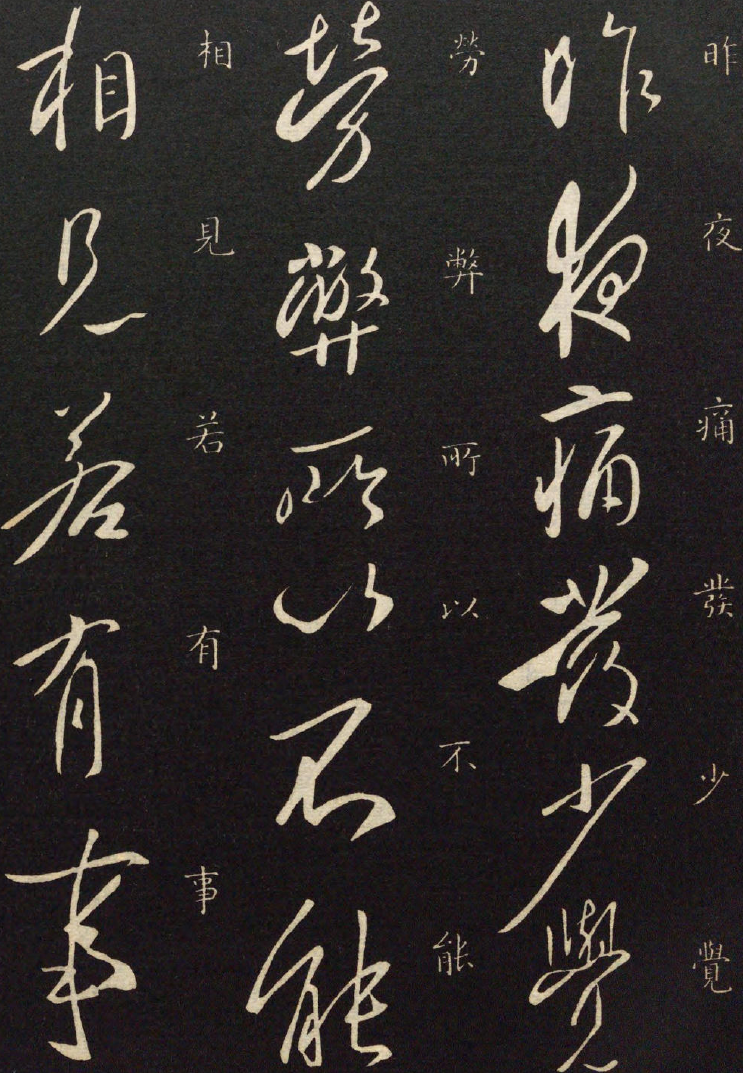 昨夜痛發少覺
昨夜痛發少覺
勞弊所以不能
勞弊所以不能
相見若有事
相見若有事